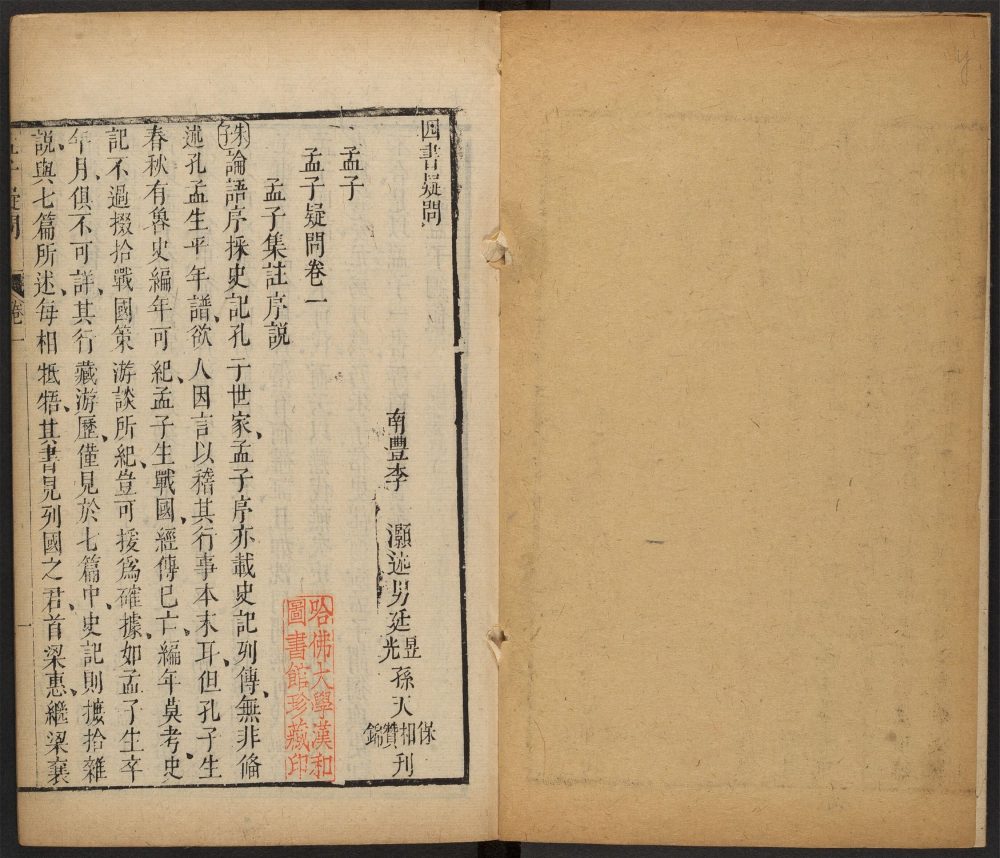 四書疑問
孟子
南豐李灝述男延昱光孫天保相贊錦刊
孟子疑問卷一
孟子集註序說
朱子論語序採史記孔子世家、孟子序亦載史記列傳、無非備
述孔孟生平年譜、欲人因言以稽其行事本末耳、但孔子生
春秋有魯史編年可紀、孟子生戰國、經傳已亡、編年莫考、史
記不過掇拾戰國策游談所紀、豈可援爲確據、如孟子生卒
年月、俱不可詳、其行藏游歷、僅見於七篇中、史記則摭拾雜
說、與七篇所述、每相牴牾、其書見列國之君、首梁惠、繼梁襄
孟子疑問 卷一 一
哈佛大學漢和
圖書館珍藏印